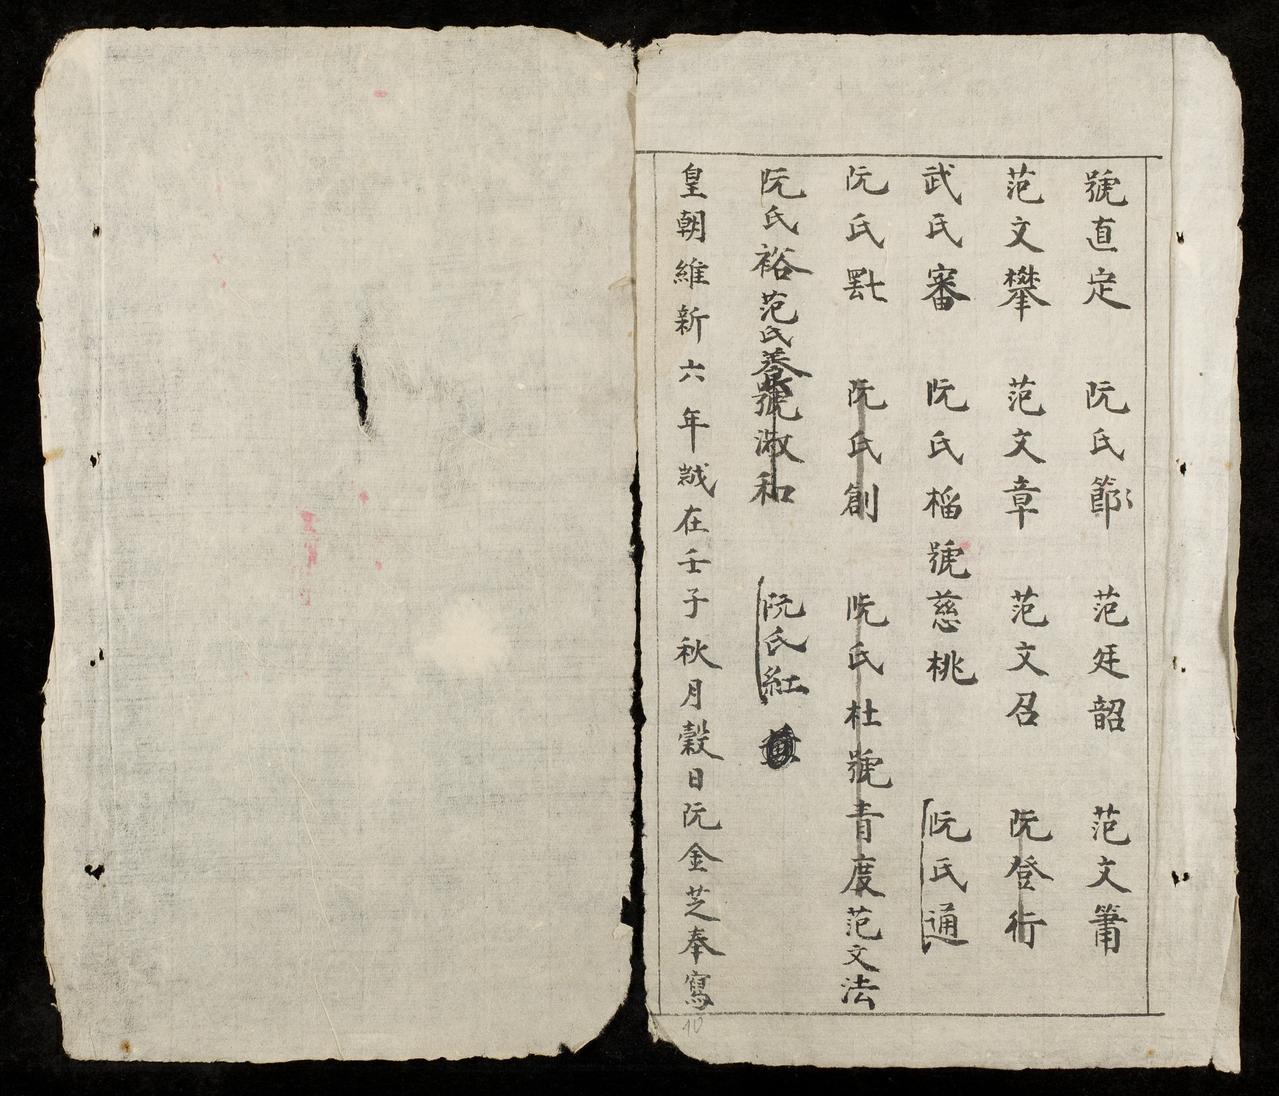 號直定 阮氏節 范廷韶 范文簫
范文攀 范文章 范文召 阮登衍
武氏審 阮氏榴號慈桃 阮氏通
阮氏 阮氏創 阮氏杜號青度范文法
阮氏裕范氏養號淑和 阮氏紅
皇朝維新六年歲在壬子秋月穀日阮金芝奉寫
10